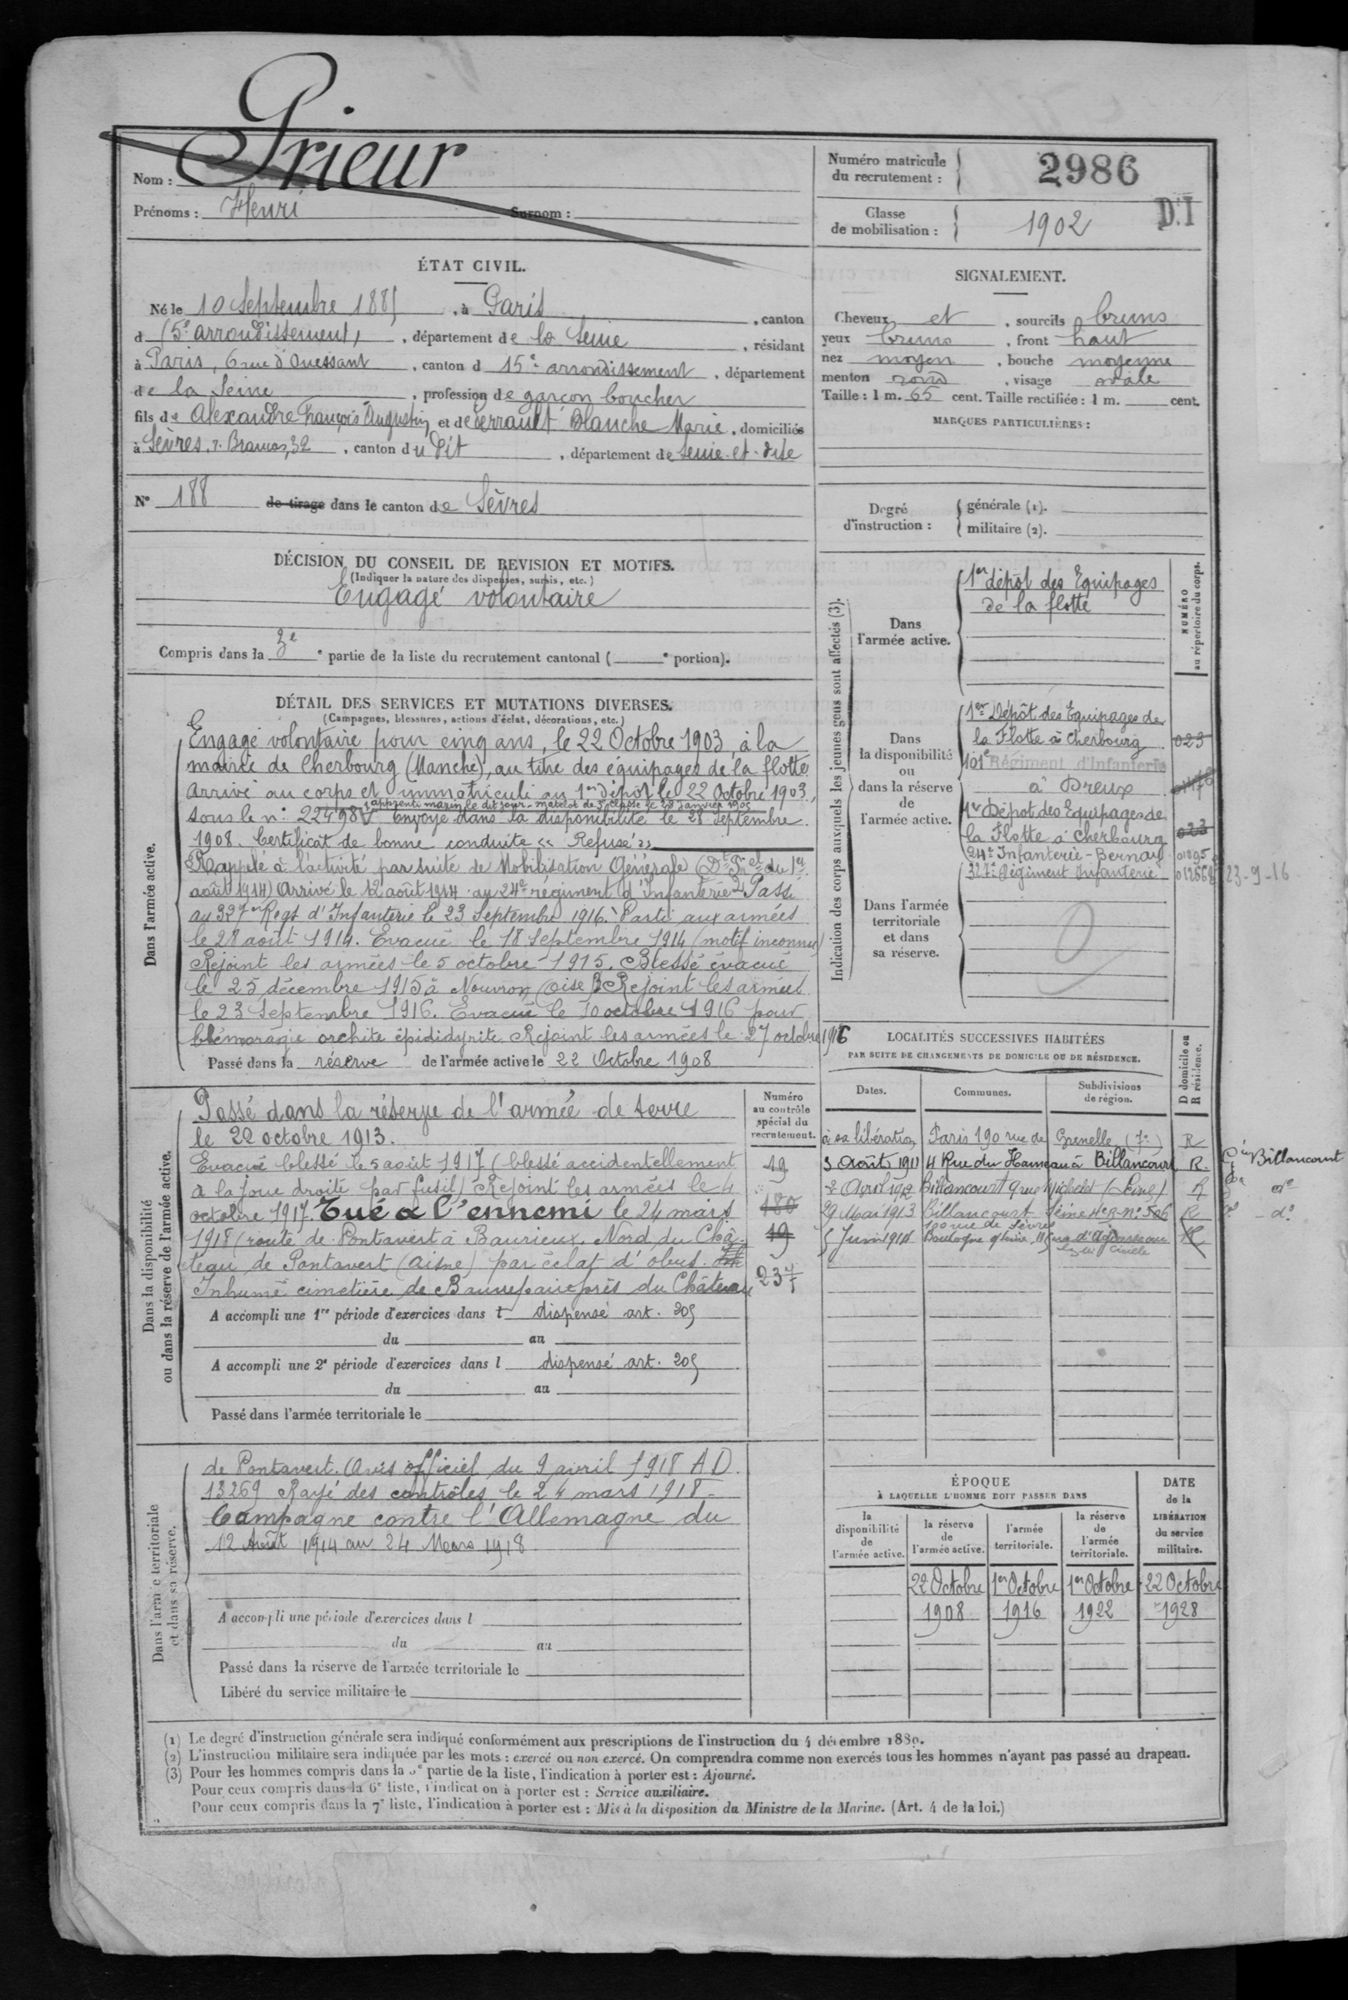 Nom : Prieur
Prénoms : Henri Surnom :
Numéro matricule du recrutement : 2986
Classe de mobilisation : 1902
D.I
ÉTAT CIVIL.
Né le 10 Septembre 1885, à Paris, canton
d (5e arrondissement), département de la Seine, résidant
à Paris, 6 rue d'Ouessant, canton d 15e arrondissement, département
de la Seine, profession de garçon boucher
fils de Alexandre François Augustin et de Perrault Blanche Marie, domiciliés
à Sèvres, r. Brancas, 32, canton du dit, département de Seine-et-Oise
N° 188 de tirage dans le canton de Sèvres
SIGNALEMENT.
Cheveux et, sourcils bruns
yeux bruns, front haut
nez moyen, bouche moyenne
menton rond, visage ovale
Taille : 1 m. 65 cent. Taille rectifiée : 1 m. cent.
MARQUES PARTICULIÈRES :
Degré d'instruction : générale (1).
militaire (2).
DÉCISION DU CONSEIL DE REVISION ET MOTIFS.
(Indiquer la nature des dispenses, sursis, etc.)
Engagé volontaire
Compris dans la 3e e partie de la liste du recrutement cantonal ( e portion).
DÉTAIL DES SERVICES ET MUTATIONS DIVERSES.
(Campagnes, blessures, actions d'éclat, décorations, etc.)
Dans l'armée active.
Engagé volontaire pour cinq ans, le 22 Octobre 1903, à la
mairie de Cherbourg (Manche), au titre des équipages de la flotte
Arrivé au corps et immatriculé au 1er dépôt le 22 Octobre 1903,
apprenti marin le dit jour - matelot de 3e classe le 28 Janvier 1905
sous le n° 22498 Envoyé dans la disponibilité le 28 Septembre
1908. Certificat de bonne conduite « Refusé »
Rappelé à l'activité par suite de Mobilisation Générale (Dt Pel du 1er
août 1914) Arrivé le 12 août 1914 au 24e régiment d'Infanterie Passé
au 327e Regt d'Infanterie le 23 Septembre 1916. Parti aux armées
le 28 août 1914. Evacué le 18 Septembre 1914 (motif inconnu)
Rejoint les armées le 5 octobre 1915. Blessé évacué
le 25 décembre 1915 à Nouvron (oise) Rejoint les armées
le 23 Septembre 1916. Evacué le 10 octobre 1916 pour
blémoragie orchite épididymite Rejoint les armées le 27 octobre 1916
Passé dans la réserve de l'armée active le 22 Octobre 1908
Indication des corps auxquels les jeunes gens sont affectés (3).
NUMÉRO au répertoire du corps.
Dans l'armée active.
1er dépôt des Equipages
de la flotte
Dans la disponibilité ou dans la réserve de l'armée active.
1er Dépôt des Equipages de
la Flotte à Cherbourg 023
101e Régiment d'Infanterie
à Dreux
1er Dépôt des Equipages de
la Flotte à Cherbourg 023
24e Infanterie - Bernay
327e Régiment Infanterie 23-9-16
Dans l'armée territoriale et dans sa réserve.
Dans la disponibilité ou dans la réserve de l'armée active.
Passé dans la réserve de l'armée de terre
le 22 octobre 1913.
Evacué blessé le 5 août 1917 (blessé accidentellement
à la joue droite par fusil) Rejoint les armées le 4
octobre 1917. Tué à l'ennemi le 24 mars
1918 (route de Pontavert à Baurieux, Nord du Châ-
teau de Pontavert (Aisne) par éclat d'obus.
Inhumé cimetière de Beaurepaire près du Château
A accompli une 1re période d'exercices dans l dispensé art. 205
du au
A accompli une 2e période d'exercices dans l dispensé art. 205
du au
Passé dans l'armée territoriale le
Numéro au contrôle spécial du recrutement.
19
180
19
LOCALITÉS SUCCESSIVES HABITÉES
PAR SUITE DE CHANGEMENTS DE DOMICILE OU DE RÉSIDENCE.
Dates. Communes. Subdivisions de région. D domicile ou R résidence.
à sa libération Paris 190 rue de Grenelle (7e) R
3 Août 1911 4 Rue du Hameau à Billancourt R. Billancourt
2 Avril 1912 Billancourt 9 rue Michelet (Seine) R do
29 Mai 1913 Billancourt Seine R do
100 rue de Sèvres
5 Juin 1914 Boulogne s/Seine, 11 rue d'Aguesseau
Dans l'armée territoriale et dans sa réserve.
de Pontavert. Avis officiel du 9 avril 1918 A D.
13269 Rayé des contrôles le 24 mars 1918.
Campagne contre l'Allemagne du
12 Août 1914 au 24 Mars 1918
A accompli une période d'exercices dans l
du au
Passé dans la réserve de l'armée territoriale le
Libéré du service militaire le
ÉPOQUE
À LAQUELLE L'HOMME DOIT PASSER DANS
DATE de la LIBÉRATION du service militaire.
la disponibilité de l'armée active. la réserve de l'armée active. l'armée territoriale. la réserve de l'armée territoriale.
22 Octobre 1er Octobre 1er Octobre 22 Octobre
1908 1916 1922 1928
(1) Le degré d'instruction générale sera indiqué conformément aux prescriptions de l'instruction du 4 décembre 1889.
(2) L'instruction militaire sera indiquée par les mots : exercé ou non exercé. On comprendra comme non exercés tous les hommes n'ayant pas passé au drapeau.
(3) Pour les hommes compris dans la 5e partie de la liste, l'indication à porter est : Ajourné.
Pour ceux compris dans la 6e liste, l'indication à porter est : Service auxiliaire.
Pour ceux compris dans la 7e liste, l'indication à porter est : Mis à la disposition du Ministre de la Marine. (Art. 4 de la loi.)